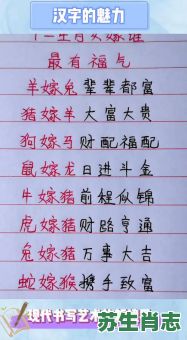 汉字的魅力
十二生肖女嫁谁
最有福气
羊嫁兔辈辈都富
猪嫁羊大富大贵
狗嫁马财配福配
鼠嫁龙日进斗金
牛嫁猪前程似锦
虎嫁猪财路亨通
兔嫁猪万事大吉
蛇嫁猴携手致富
现代书写艺术
苏生肖志